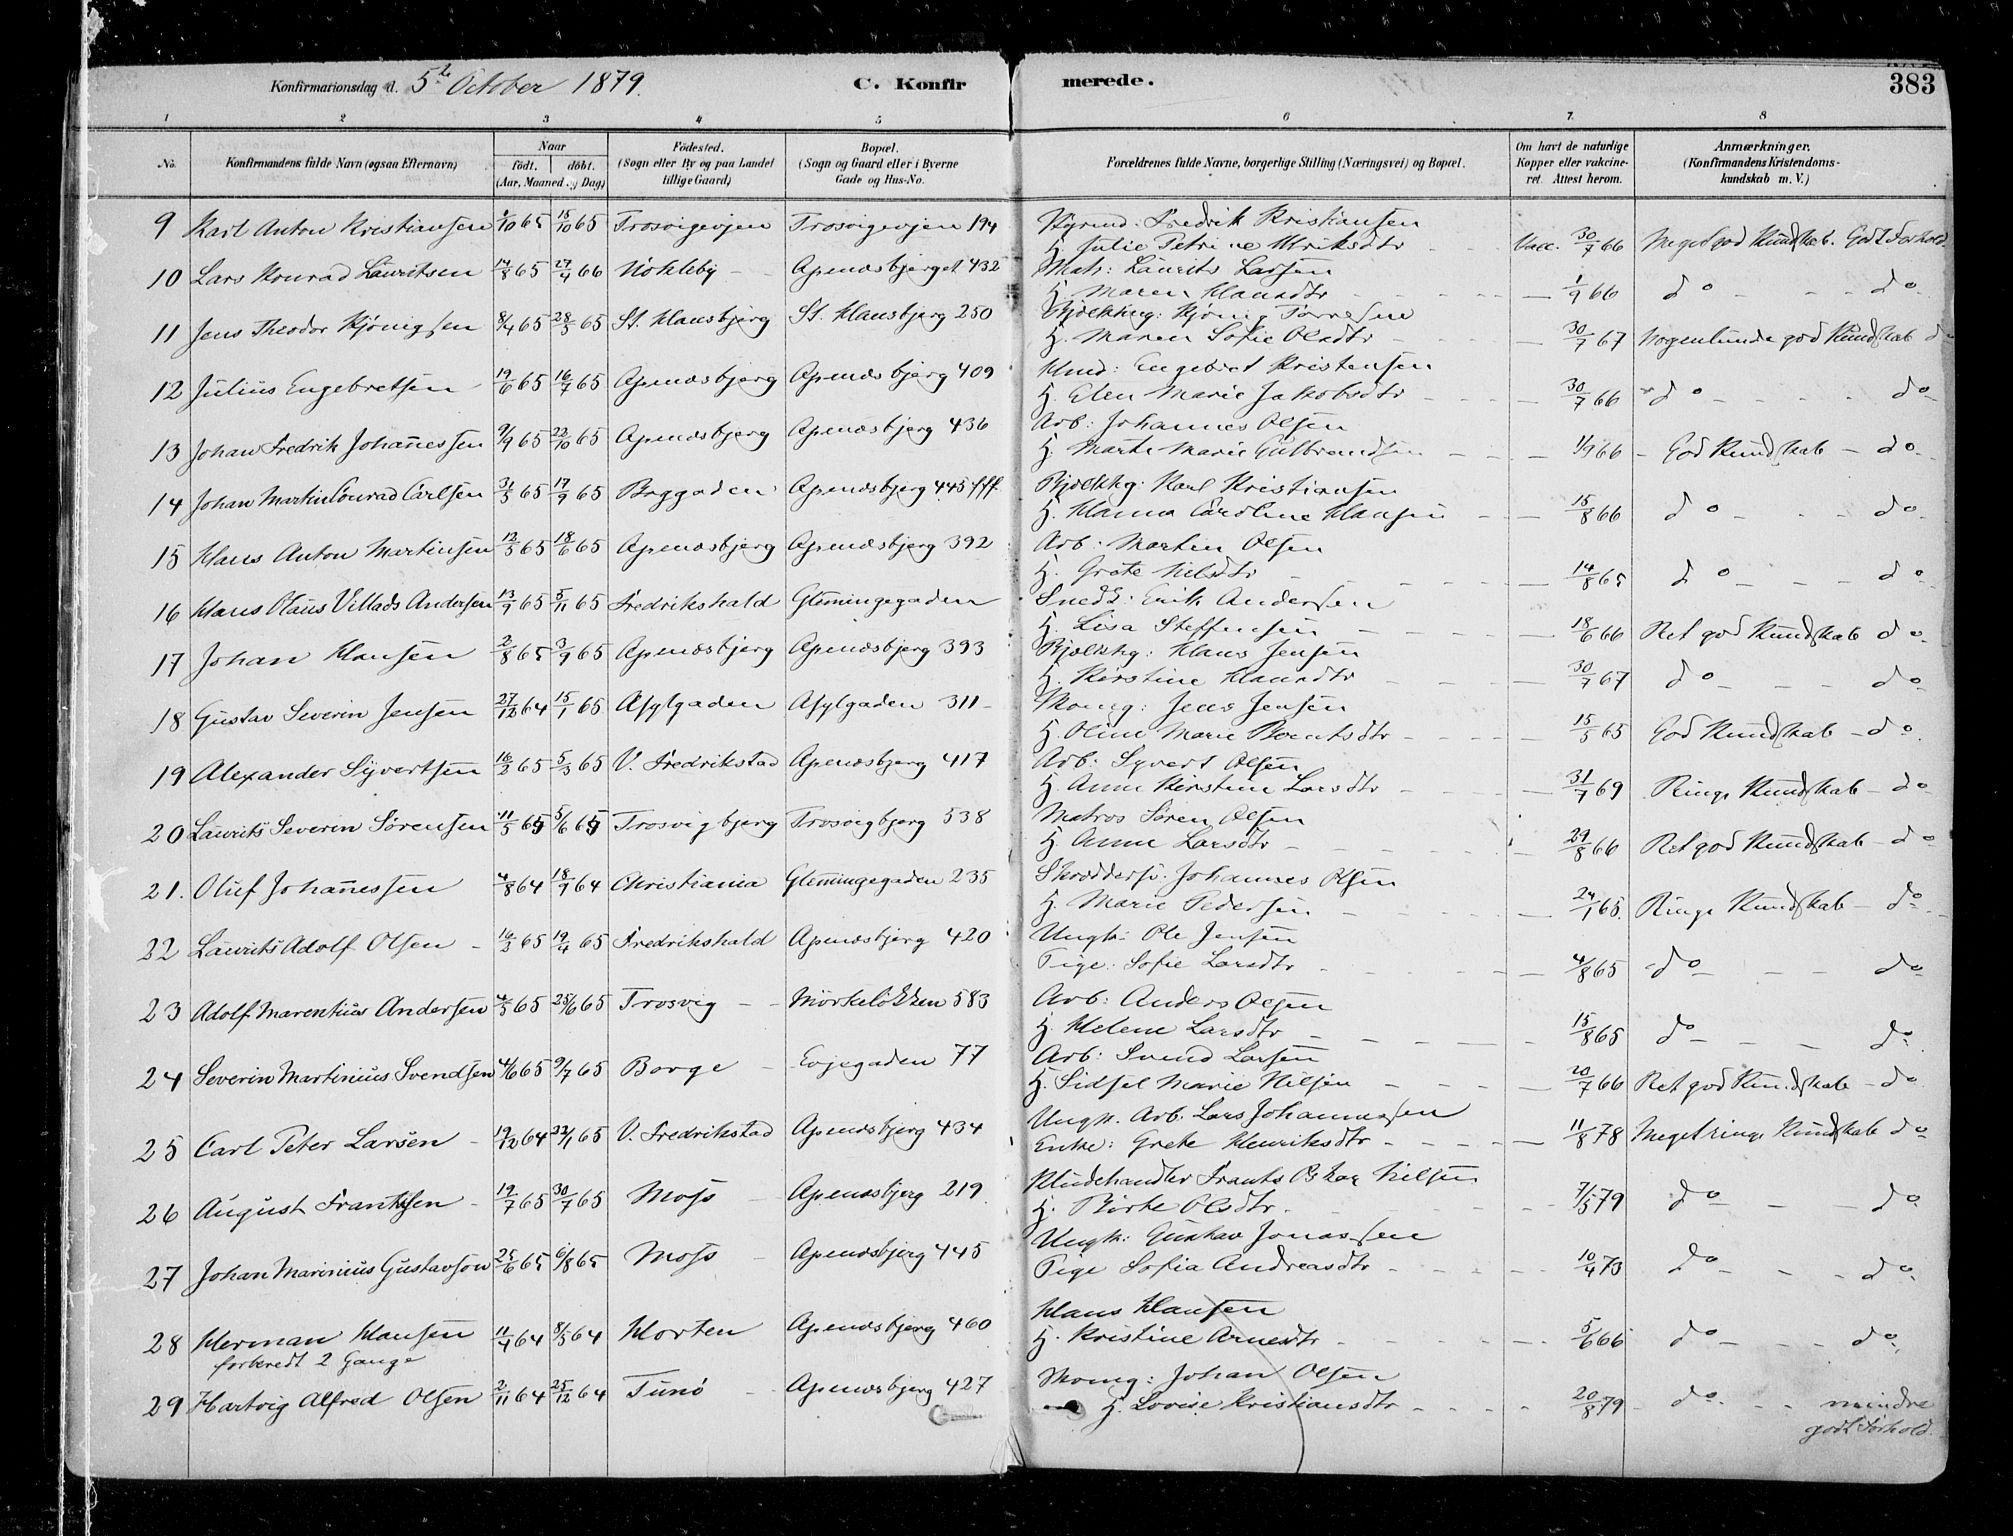 Konfirmationsdag d. 5te October 1879. C. Konfirmerede. 383
1 2 3 4 5 6 7. 8
No. Konfirmandens fulde Navn (ogsaa Efternavn) Naar födt. döbt. (Aar, Maaned og Dag) Födested. (Sogn eller By og paa Landet tillige Gaard) Bopæl. (Sogn og Gaard eller i Byerne Gade og Hus-No. Forældrenes fulde Navne, borgerlige Stilling (Næringsvei) og Bopæl. Om havt de naturlige Kopper eller vakcineret. Attest herom. Anmærkninger. (Konfirmandens Kristendomskundskab m. V.)
9 Karl Anton Kristiansen /10 65 15/10 65 Trosvigevjen Trosvigevjen 194 Styrmd. Fredrik Kristiansen
H. Julie Petrine Ulriksdtr Vacc. 30/7 66 Meget god Kundskab. Godt Forhold
10 Lars Konrad Lauritsen 14/8 65 27/4 66 Nökleby Apenæsbjerget 432 Matr: Laurits Larsen
H. Maren Hansdtr 1/9 66 do do
11 Jens Theodor Kjönigsen 8/4 65 28/5 65 St. Hansbjerg St. Hansbjerg 250 Bjælkhg: Kjönig Tørresen
H. Maren Sofie Olsdtr 30/7 67 Nogenlunde god Kundskab do
12 Julius Engebretsen 19/6 65 16/7 65 Apenæsbjerg Apenæsbjerg 409 Engebret Kristensen
H. Elen Marie Jakobsdtr 30/7 66 do do
13 Johan Fredrik Johannessen 9/9 65 22/10 65 Apenæsbjerg Apenæsbjerg 436 Arb: Johannes Olsen
H. Marte Marie Gulbrandsen 1/9 66 God Kundskab do
14 Johan Martin Conrad Carlsen 31/5 65 17/9 65 Brygaden Apenæsbjerg 445 fff. Bjælkhg: Karl Kristiansen
H. Hanna Caroline Hansen 15/8 66 do do
15 Hans Anton Martinsen 12/5 65 18/6 65 Apenæsbjerg Apenæsbjerg 392 Arb: Martin Olsen
H. Grete Nilsdtr 14/8 65 do do
16 Hans Olaus Villads Andersen 13/9 65 5/11 65 Fredrikshald Glemmingegaden Snedk: Erik Andersen
H. Lisa Steffensen 18/6 66 Ret god Kundskab do
17 Johan Hansen 2/8 65 3/9 65 Apenæsbjerg Apenæsbjerg 393 Bjælkhg: Hans Jensen
H. Kirstine Hansdtr 30/7 67 do do
18 Gustav Severin Jensen 27/12 64 15/1 65 Asylgaden Asylgaden 311 Jens Jensen
H. Oline Marie Berntsdtr 15/5 65 God Kundskab do
19 Alexander Syvertsen 16/2 65 5/3 65 V. Fredrikstad Apenæsbjerg 417 Arb: Syvert Olsen
H. Anne Kirstine Larsdtr 31/7 69 Ringe Kundskab do
20 Laurits Severin Sörensen 11/5 65 5/6 65 Trosvigbjerg Trosvigbjerg 538 Matros Sören Olsen
H. Anne Larsdtr 29/8 66 Ret god Kundskab do
21. Oluf Johannessen 4/8 64 18/9 64 Christiania Glemmingegaden 235 Skræddersv. Johannes Olsen
H. Marie Pedersen 24/1 65. Ringe Kundskab do
22 Laurits Adolf Olsen 16/3 65 19/4 65 Fredrikshald Apenæsbjerg 420 Ungk: Ole Jensen
Pige: Sofie Larsdtr 4/8 65 do do
23 Adolf Marentius Andersen 4/5 65 25/6 65 Trosvig Mörkelökken 583 Arb: Anders Olsen
H. Helene Larsdtr 15/8 65 do do
24 Severin Martinius Svendsen 4/6 65 9/7 65 Borge Evjegaden 77 Arb: Svend Larsen
H. Sidsel Marie Nilsen 20/7 66 Ret god Kundskab do
25 Carl Peter Larsen 19/12 64 22/1 65 V. Fredrikstad Apenæsbjerg 434 Ungk. Arb. Lars Johannessen
Enke: Grete Henriksdtr 11/8 78 Meget ringe Kundskab do
26 August Frantsen 19/7 65 30/7 65 Moss Apenæsbjerg 219 Kludehandler Frants Oskar Nilsen
H. Birte Olsdtr 7/5 79 do do
27 Johan Marinius Gustavson 25/6 65 6/8 65 Moss Apenæsbjerg 445 Ungk: Gustav Jonassen
Pige Sofia Andreasdtr 10/4 73 do do
28 Herman Hansen 11/4 64 8/5 64 Horten Apenæsbjerg 460 Hans Hansen
forberedt 2 Gange H. Kristine Arnesdtr 5/6 66 do do
29 Hartvig Alfred Olsen 2/11 64 25/12 64 Tunö Apenæsbjerg 427 Johan Olsen
H. Lovise Kristiansdtr 20/8 79 do mindre
godt Forhold.